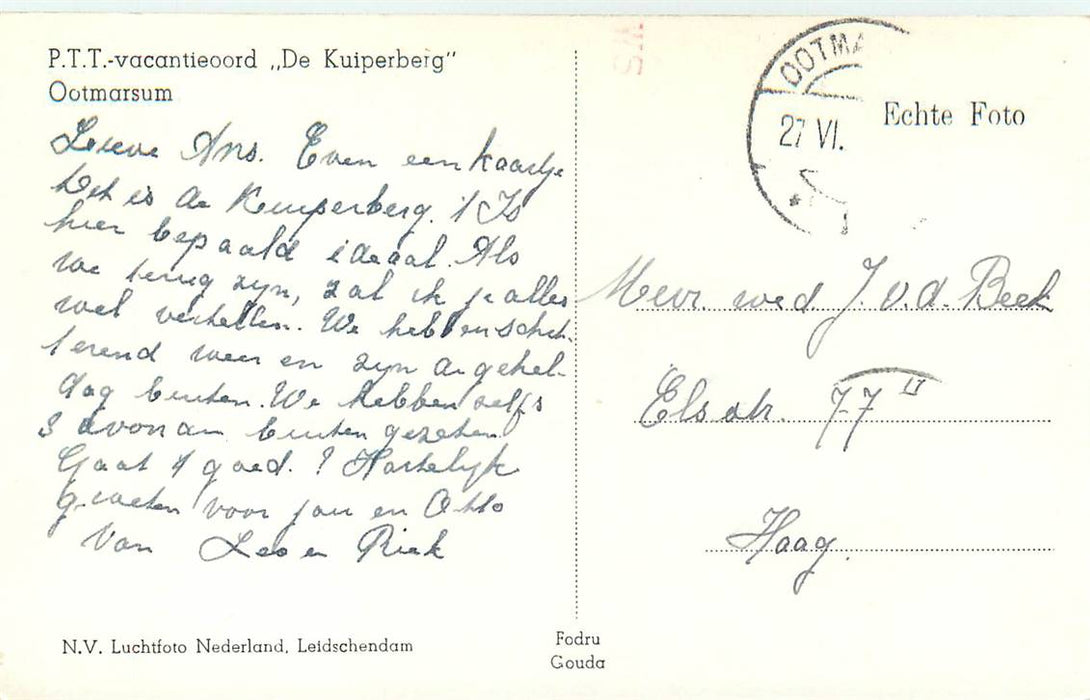 P.T.T.-vacantieoord „De Kuiperberg"
Ootmarsum
Lieve Ans. Even een kaartje
Dit is de Kuiperberg. 't Is
hier bepaald ideaal. Als
we terug zyn, zal ik je alles
wel vertellen. We hebben schit-
terend weer en zyn de gehel-
dag buiten. We hebben zelfs
3 avonden buiten gezeten.
Gaat 't goed. ? Hartelyk
groeten voor jou en Otto
Van Leo en Riek
N.V. Luchtfoto Nederland, Leidschendam
Fodru
Gouda
OOTMA
27 VI.
Echte Foto
Mevr. wed J. v. d. Beek
Elsstr. 77
Haag.